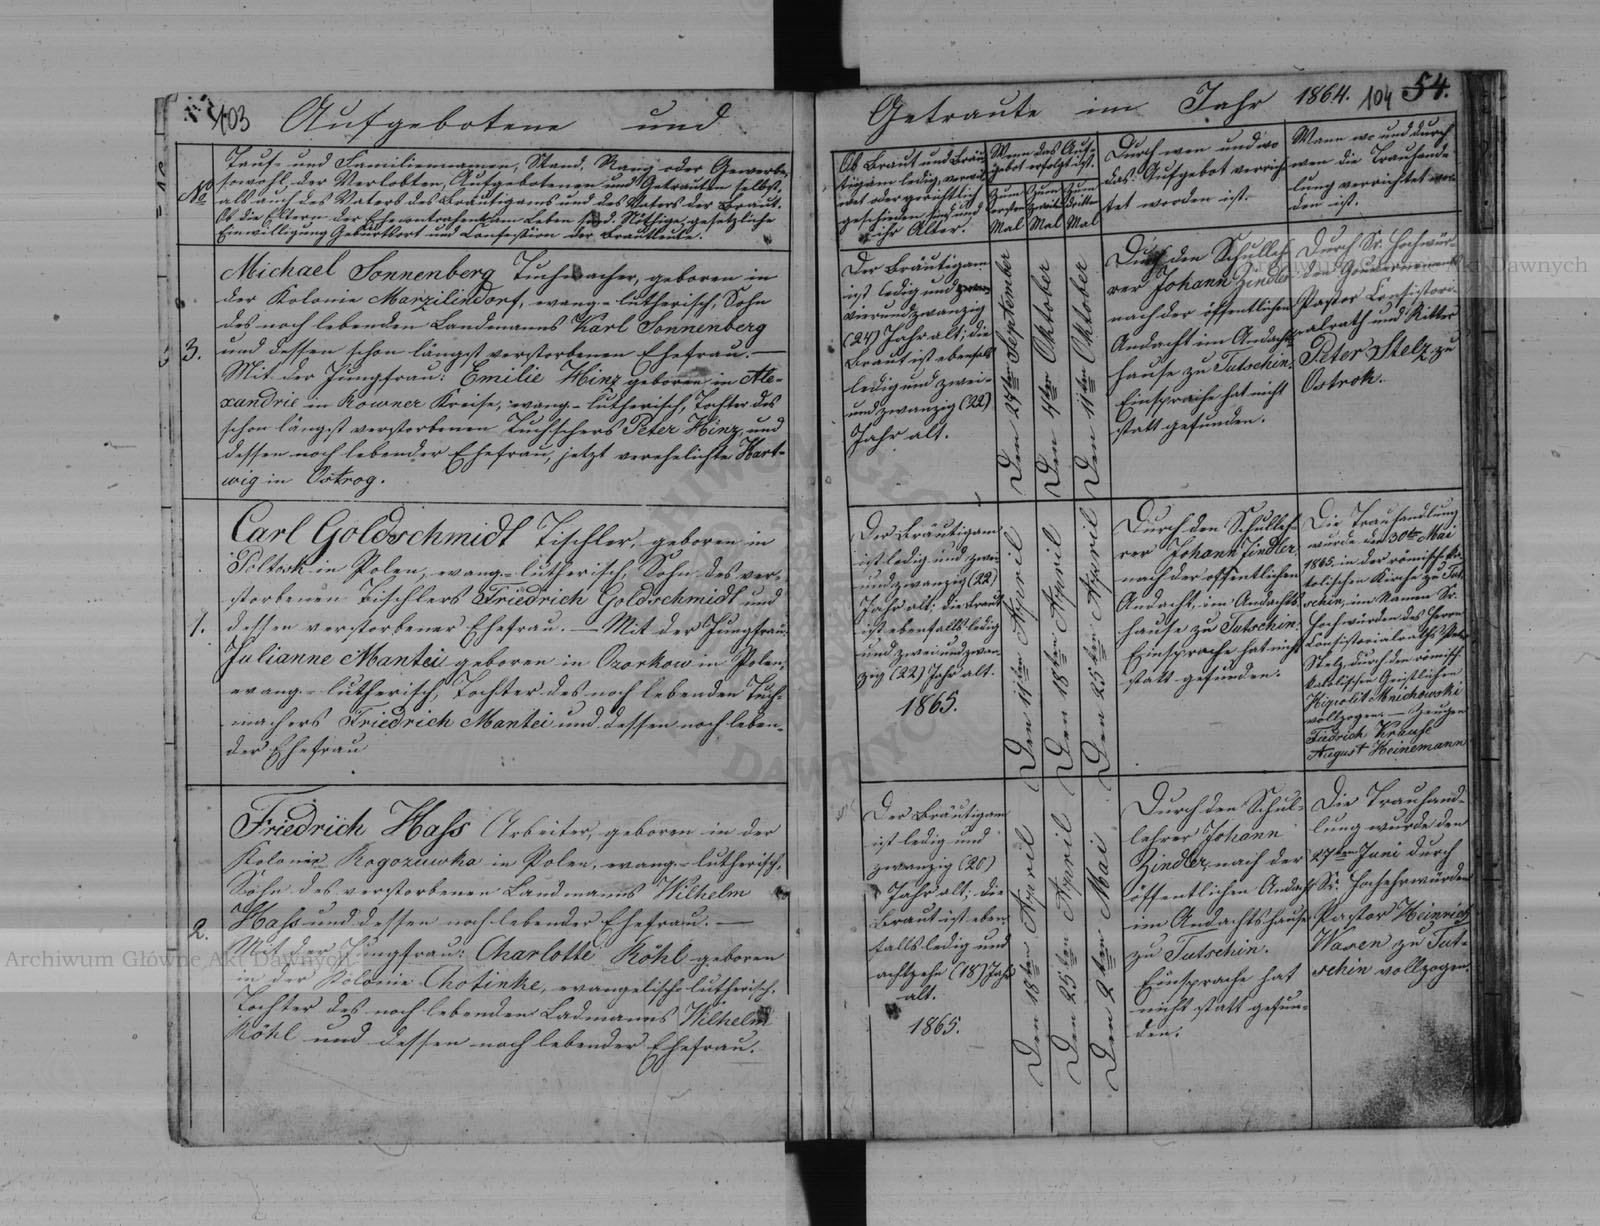 103 Aufgebotene und
Getraute im Jahr 1864. 104 54.
No
Tauf- und Familiennamen, Stand, Rang oder Gewerbe,
sowohl der Verlobten, Aufgebotenen und Getrauten selbst,
als auch des Vaters des Bräutigams und des Vaters der Braut.
Ob die Eltern der Ehecontrahenten am Leben sind. Nöthige gesetzliche
Einwilligung Geburtsort und Confession der Brautleute.
Ob Braut und Bräu-
tigam ledig, verwit-
wet oder gerichtlich
geschieden sind und
ihr Alter.
Wenn das Auf-
gebot erfolgt ist.
Zum ersten Mal
Zum zweiten Mal
Zum dritten Mal
Durch wen und wo
das Aufgebot verrich-
tet worden ist.
Wann wo und durch
wen die Trauhand-
lung verrichtet wor-
den ist.
3.
Michael Sonnenberg Tuchmacher, geboren in
der Kolonie Marzilindorf, evang-lutherisch, Sohn
des noch lebenden Landmanns Karl Sonnenberg
und dessen schon längst verstorbenen Ehefrau. —
Mit der Jungfrau: Emilie Hinz geboren in Ale-
xandrie in Rowner Kreise, evang-lutherisch, Tochter des
schon längst verstorbenen Peter Hinz, und
dessen noch lebender Ehefrau, jetzt verehelichte Hart-
wig in Ostrog.
Der Bräutigam
ist ledig und
vierundzwanzig
(24) Jahr alt; die
Braut ist ebenfalls
ledig und zwei-
undzwanzig (22)
Jahr alt.
Den 27ten September
Den 4ten Oktober
Den 11ten Oktober
Durch den Schulleh-
rer Johann Zindler
nach der öffentlichen
Andacht im Andachts-
hause zu Tutschin.
Einsprache hat nicht
statt gefunden.
Durch Sr. Hochwür-
den
Pastor Consistori-
alrath und Ritter
Peter Stelz zu
Ostrok.
1.
Carl Goldschmidt Tischler, geboren in
Poltosk in Polen, evang-lutherisch, Sohn des ver-
storbenen Tischlers Friedrich Goldschmidt und
dessen verstorbener Ehefrau. — Mit der Jungfrau:
Julianne Mantei geboren in Ozorkow in Polen,
evang-lutherisch, Tochter des noch lebenden Tuch-
machers Friedrich Mantei und dessen noch leben-
der Ehefrau
Der Bräutigam
ist ledig und zwei-
undzwanzig (22)
Jahr alt; die Braut
ist ebenfalls ledig
und zweiundzwan-
zig (22) Jahr alt.
1865.
Den 11ten April
Den 18ten April
Den 25ten April
Durch den Schulleh-
rer Johann Zindler
nach der öffentlichen
Andacht, im Andachts-
hause zu Tutschin.
Einsprache hat nicht
statt gefunden.
Die Trauhandlung
wurde den 30ten Mai
1865. in der römisch ka-
tolischen Kirche zu Tut-
schin, im Namen Sr.
Hochwürden des Herrn
Consistorialraths Peter
Stelz, durch den römisch
katolischen Geistlichen
Hipolit Mnichowski
vollzogen. — Zeugen
Fiedrich Krause
August Heinemann
2.
Friedrich Hass Arbeiter, geboren in der
Kolonie Rogozuwka in Polen, evang-lutherisch,
Sohn des verstorbenen Landmanns Wilhelm
Hass und dessen noch lebender Ehefrau. —
Mit der Jungfrau: Charlotte Röhl geboren
in der Kolonie Chotinke, evangelisch-lutherisch,
Tochter des noch lebenden Ladmanns Wilhelm
Röhl und dessen noch lebender Ehefrau.
Der Bräutigam
ist ledig und
zwanzig (20)
Jahr alt; die
Braut ist eben-
falls ledig und
achtzehn (18) Jahr
alt.
1865.
Den 18ten April
Den 25ten April
Den 2ten Mai
Durch den Schul-
lehrer Johann
Zindler, nach der
öffentlichen Andacht
im Andachtshause
zu Tutschin.
Einsprache hat
nicht statt gefun-
den.
Die Trauhand-
lung wurde den
27ten Juni durch
Sr. Hochehrwürden
Pastor Heinrich
Wasen zu Tut-
schin vollzogen.
Archiwum Główne Akt Dawnych
Archiwum Główne Akt Dawnych